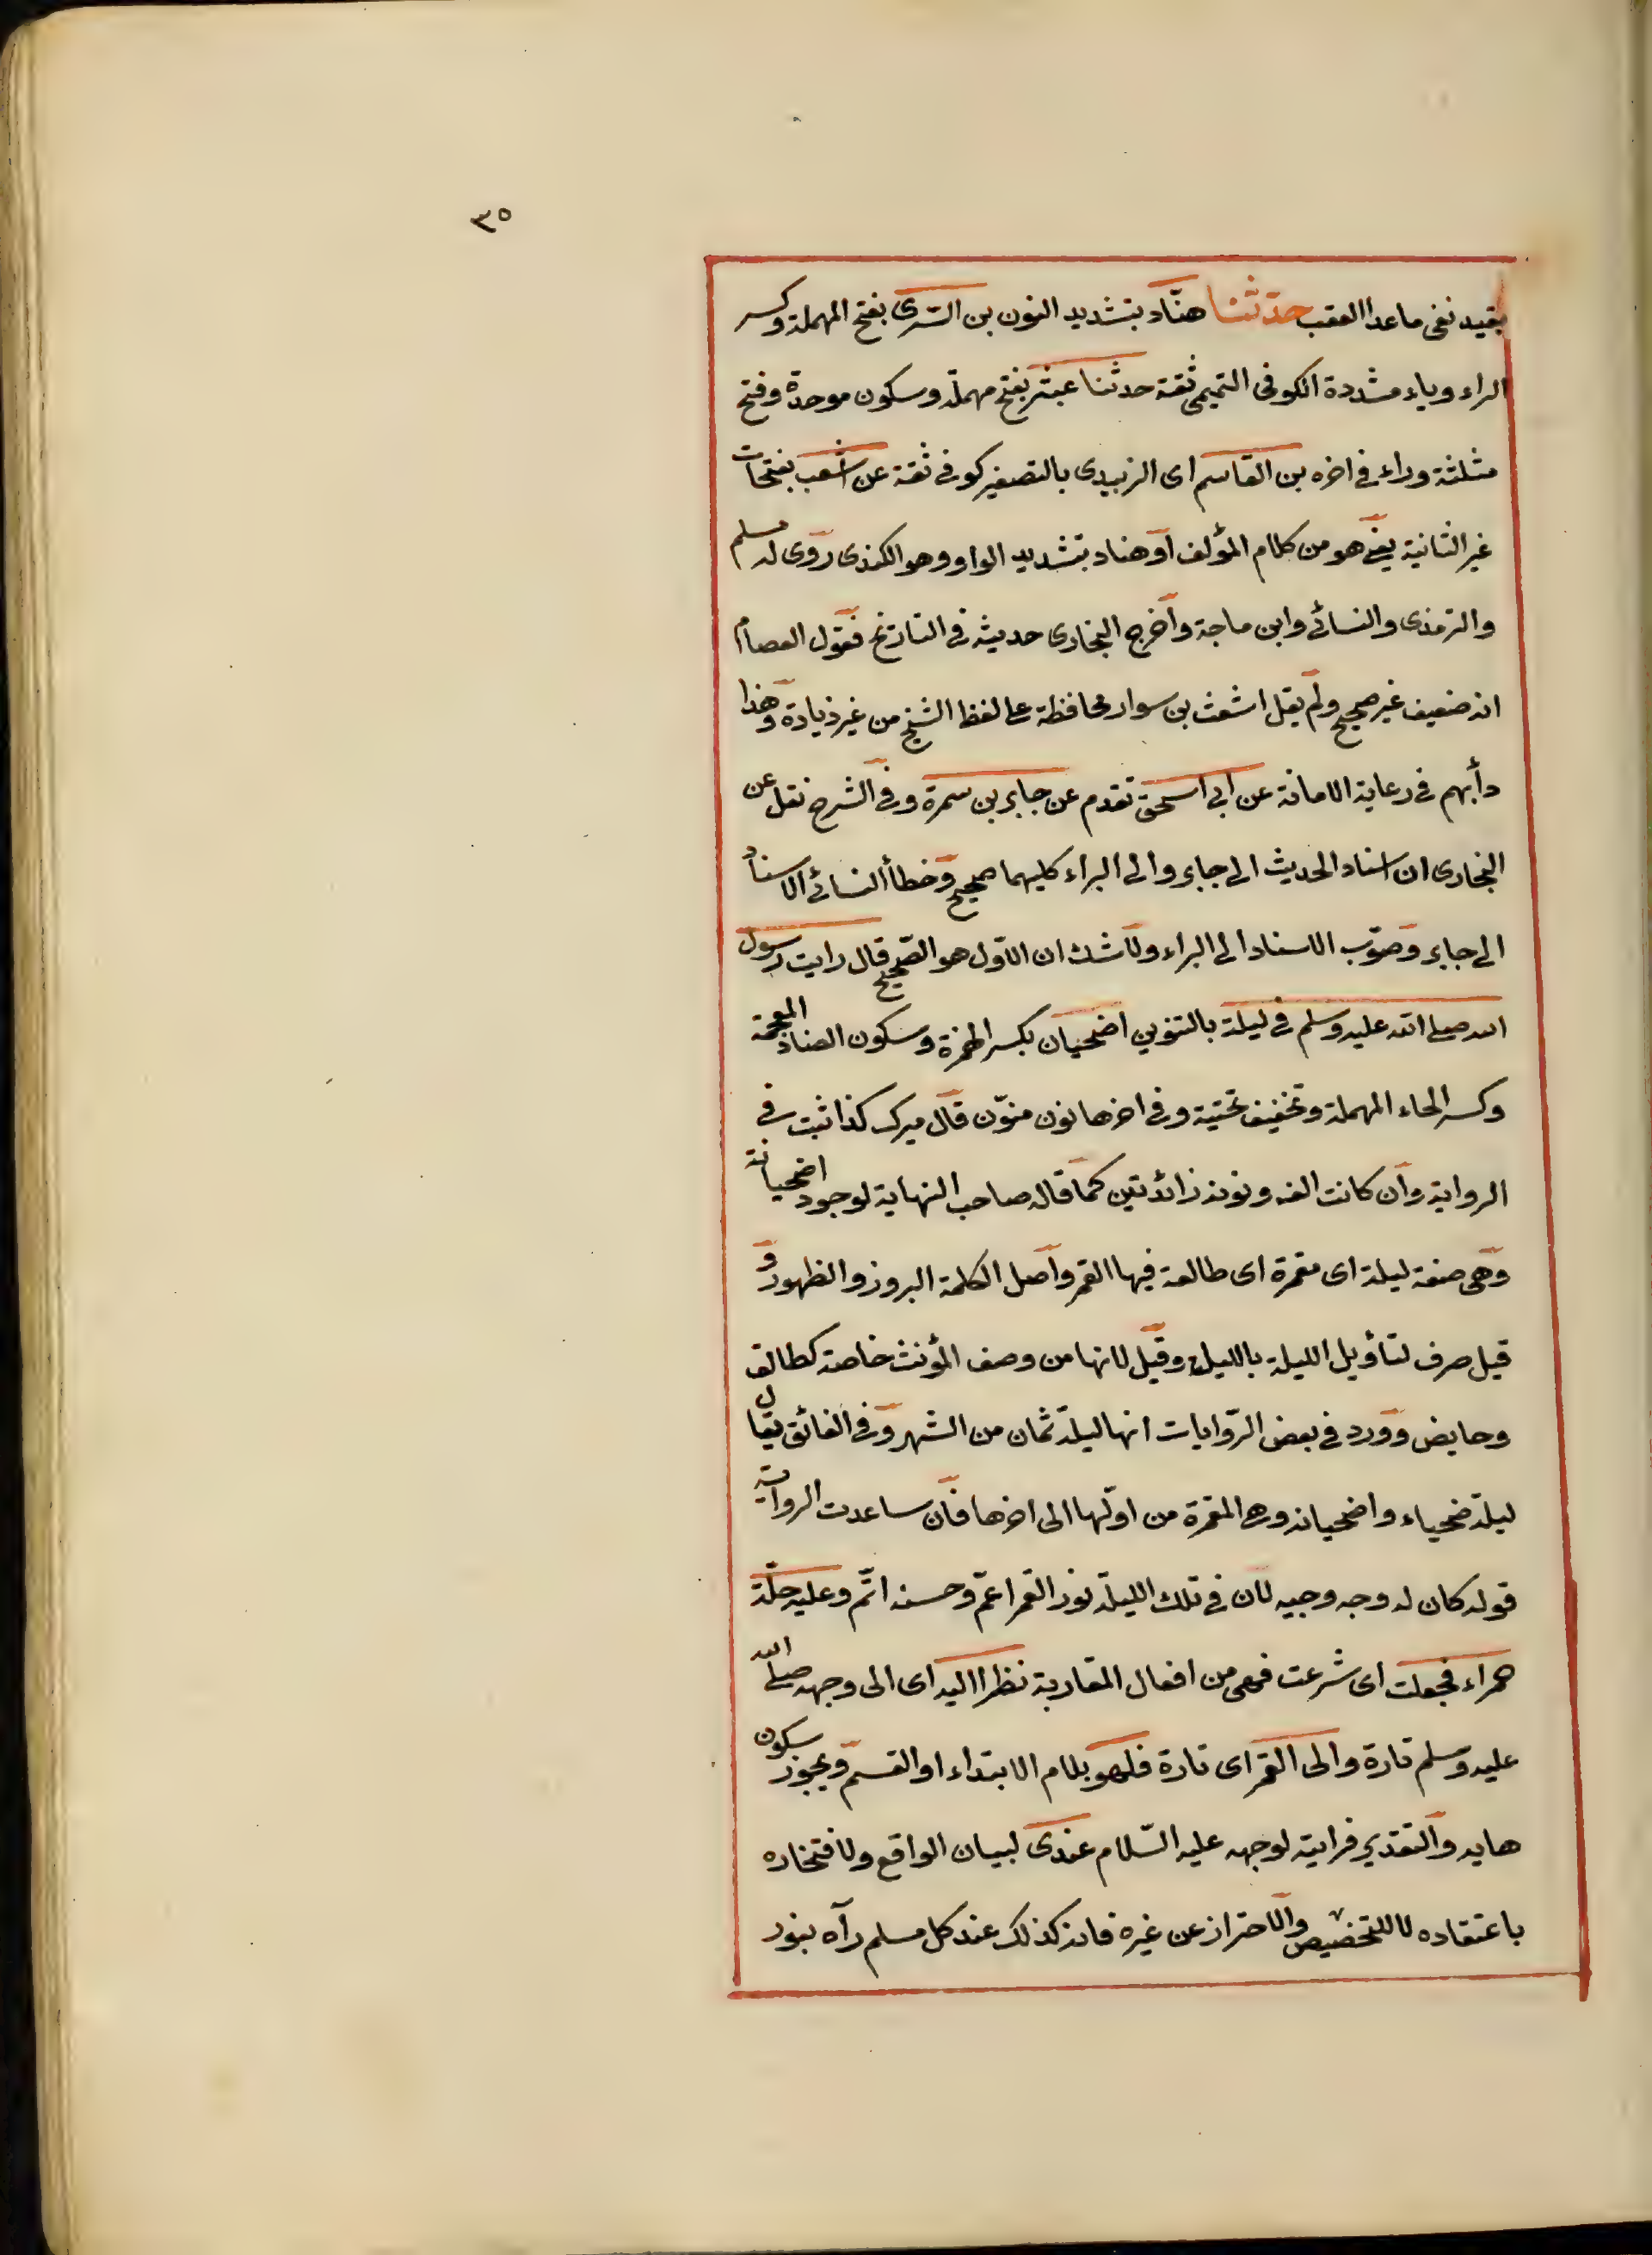 ٣٥
يقيد نفى ماعدا العقب حدثنا هنّاد بتشديد النون بن السّرى بفتح المهملة وكسر
الراء وياء مشددة الكوفى التميمى ثقة حدثنا عبثر بفتح مهملة وسكون موحدة وفتح
مثلثة وراء فى اخره بن القاسم اى الزبيدى بالتصغير كوفى ثقة عن اشعب بفتحات
غير الثانية يعنى هو من كلام المؤلف او هناد بتشديد الواو وهو الكندى روى له مسلم
والترمذى والنسائى وابن ماجة واخرج البخارى حديثه فى التاريخ فقول العصام
انه ضعيف غير صحيح ولم يقل اشعث بن سوار محافظة على لفظ الشيخ من غير زيادة وهذا
دأبهم فى رعاية الامانة عن ابى اسحق تقدم عن جابر بن سمرة وفى الشرح نقل عن
البخارى ان اسناد الحديث الى جابر والى البراء كليهما صحيح وخطأ النسائى الاسناد
الى جابر وصوّب الاسناد الى البراء ولا شك ان الاوّل هو الصّحيح قال رايت رسول
الله صلى الله عليه وسلم فى ليلة بالتنوين اضحيان بكسر الهمزة وسكون الضاد المعجمة
وكسر الحاء المهملة وتخفيف تحتية وفى اخرها نون منوّن قال ميرك كذا ثبت فى
الرواية وان كانت الفه ونونه زائدتين كما قاله صاحب النهاية لوجود اضحيانة
وهى صفة ليلة اى مقمرة اى طالعة فيها القمر واصل الكلمة البروز والظهور و
قيل صرف لتأويل الليلة بالليل وقيل لانها من وصف المؤنث خاصة كطالق
وحايض وورد فى بعض الرّوايات انها ليلة ثمان من الشهر وفى الفائق يقال
ليلة ضحياء واضحيانه وهى المقمرة من اوّلها الى اخرها فان ساعدت الرواية
قوله كان له وجه وجيه لان فى تلك الليلة نور القمر اعمّ وحسنه اتمّ وعليه حلّة
حمراء فجعلت اى شرعت فهى من افعال المقاربة نظر االيه اى الى وجهه صلى الله
عليه وسلم تارة والى القمر اى تارة فلهو بلام الابتداء او القسم ويجوز سكون
هايه والتقدير فرايته لوجهه عليه السّلام عندى لبيان الواقع ولافتخاره
باعتقاده لا للتخصيص والاحتراز عن غيره فانه كذلك عند كل مسلم رآه بنور